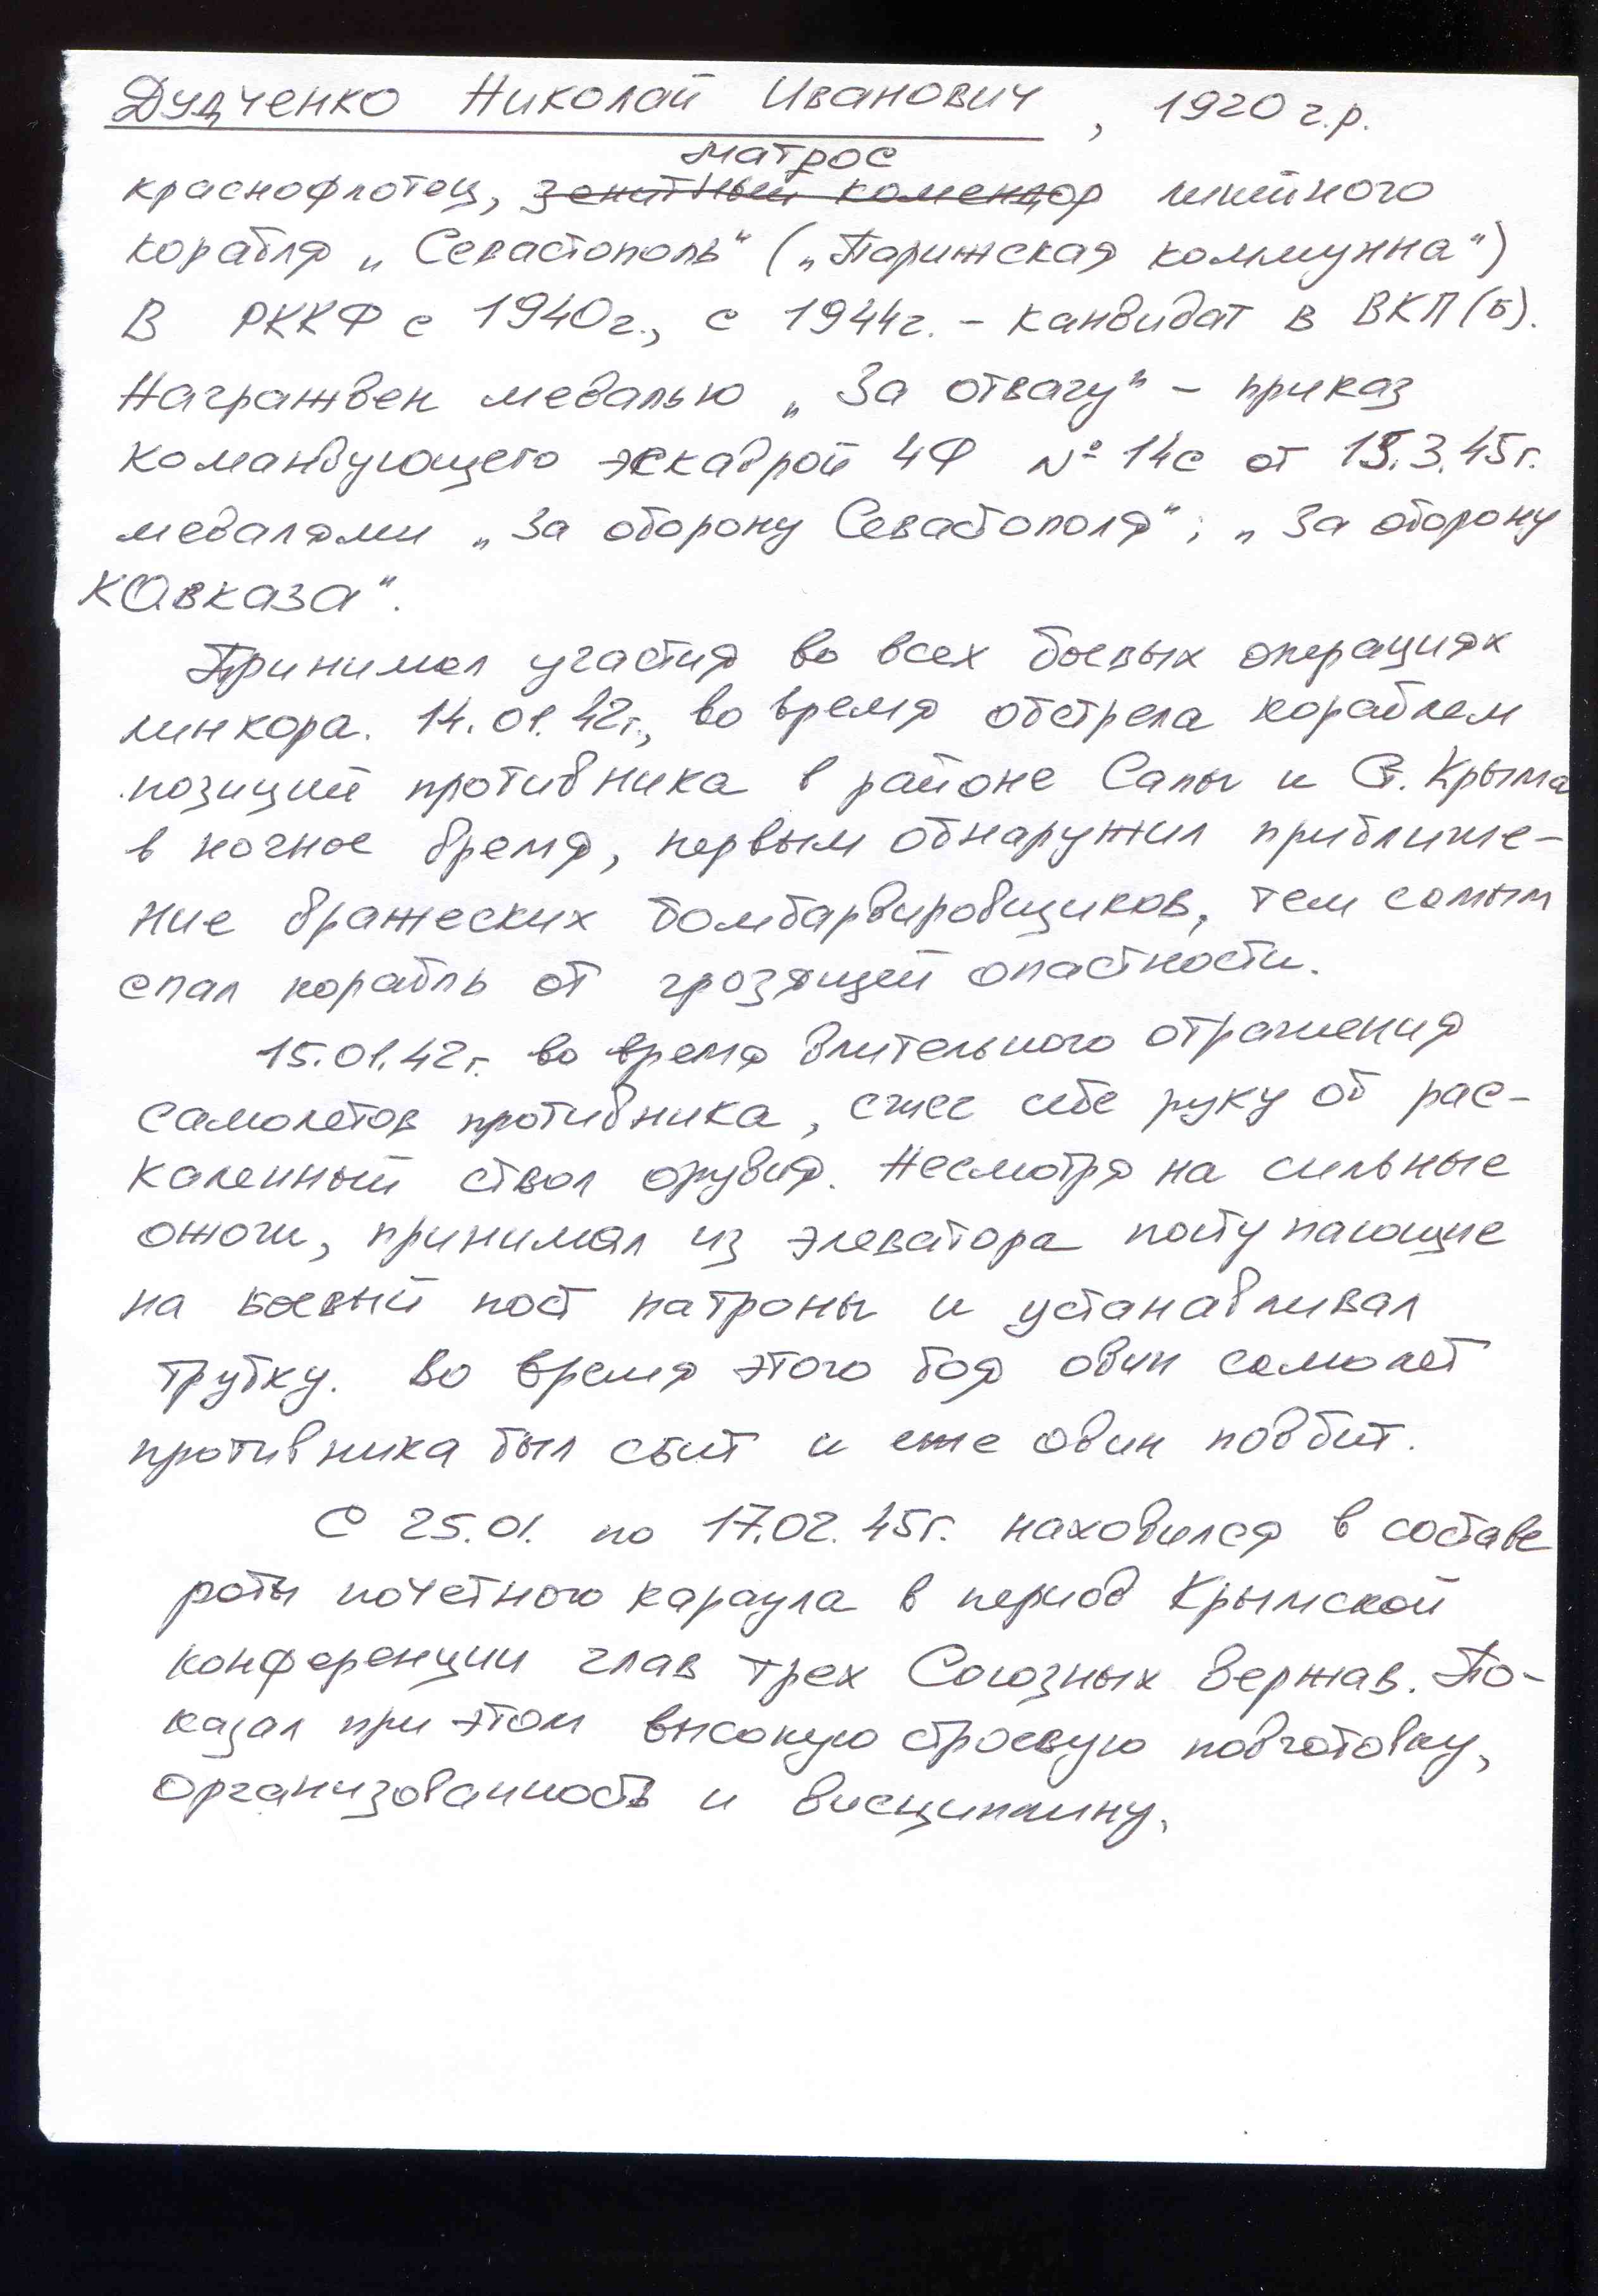 Дудченко Николай Иванович, 1920 г.р.
матрос
краснофлотец, зенитный комендор линейного
корабля „Севастополь" („Парижская коммунна")
В РККФ с 1940г., с 1944г. – кандидат в ВКП(б).
Награжден медалью „За отвагу" – приказ
командующего эскадрой ЧФ № 14с от 15.3.45г.
медалями „За оборону Севастополя"; „За оборону
Кавказа".
Принимал участия во всех боевых операциях
линкора. 14.01.42г., во время обстрела кораблем
позиций противника в районе Сапы и Ст. Крыма
в ночное время, первым обнаружил приближе-
ние вражеских бомбардировщиков, тем самым
спал корабль от грозящей опастности.
15.01.42г. во время длительного отражения
самолетов противника, сжег себе руку об рас-
каленный ствол орудия. Несмотря на сильные
ожоги, принимал из элеватора поступающие
на боевый пост патроны и устанавливал
трубку. Во время этого боя один самолет
противника был сбит и еще один подбит.
С 25.01. по 17.02.45г. находился в составе
роты почетного караула в период Крымской
конференции глав трех Союзных держав. По-
казал при этом высокую строевую подготовку,
организованность и дисциплину.